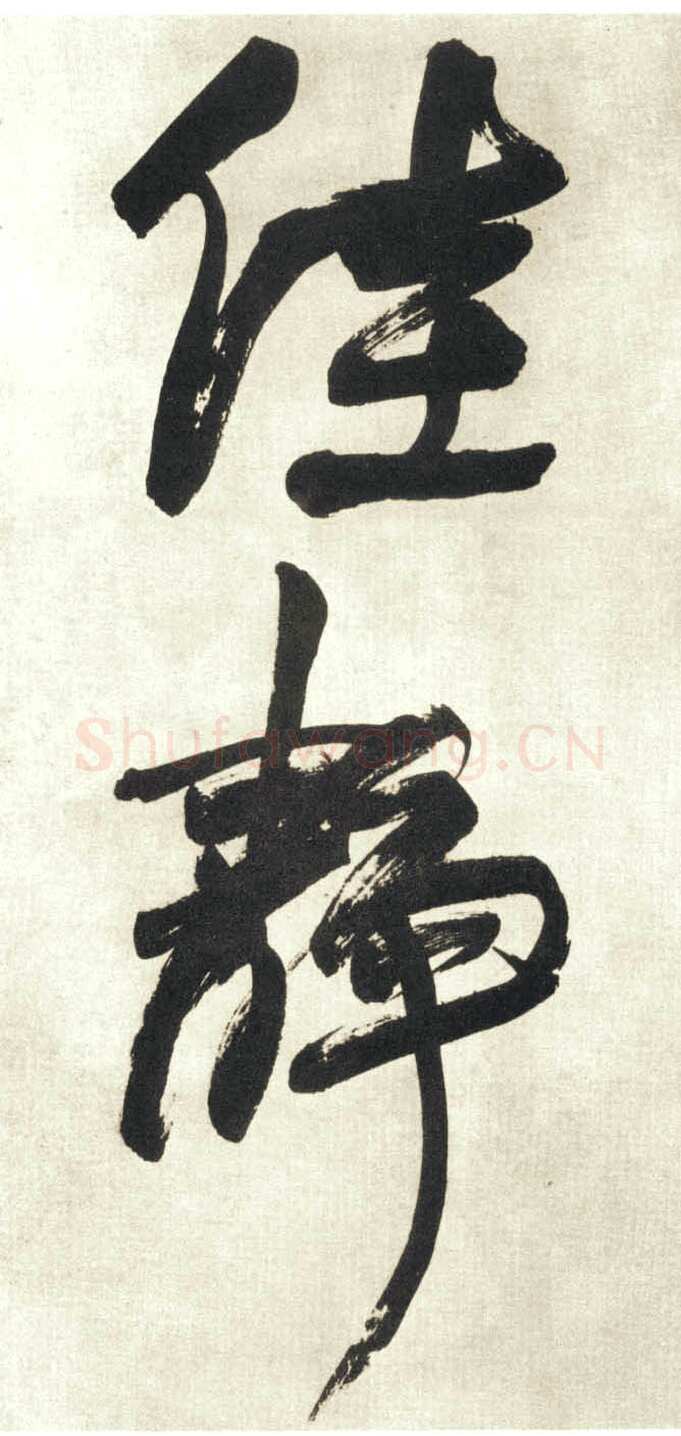 佳静
Shufawang.CN